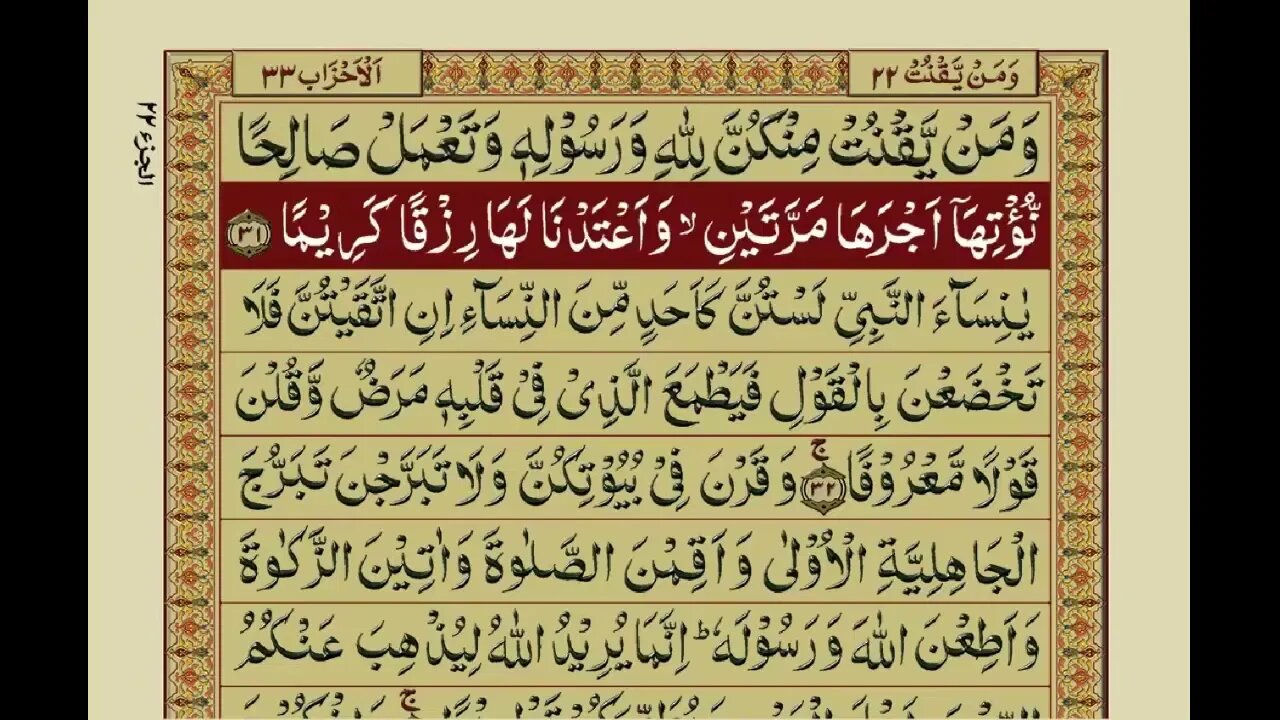 وَمَنْ يَّقْنُتْ ٢٢
اَلْاَحْزَاب ٣٣
الجزء ٢٢
وَمَنْ يَّقْنُتْ مِنْكُنَّ لِلّٰهِ وَرَسُوْلِهٖ وَتَعْمَلْ صَالِحًا
نُّؤْتِهَاۤ اَجْرَهَا مَرَّتَيْنِ ۙ وَاَعْتَدْنَا لَهَا رِزْقًا كَرِيْمًا ٣١
يٰنِسَآءَ النَّبِيِّ لَسْتُنَّ كَاَحَدٍ مِّنَ النِّسَآءِ اِنِ اتَّقَيْتُنَّ فَلَا
تَخْضَعْنَ بِالْقَوْلِ فَيَطْمَعَ الَّذِيْ فِيْ قَلْبِهٖ مَرَضٌ وَّقُلْنَ
قَوْلًا مَّعْرُوْفًا ۚ ٣٢ وَقَرْنَ فِيْ بُيُوْتِكُنَّ وَلَا تَبَرَّجْنَ تَبَرُّجَ
الْجَاهِلِيَّةِ الْاُوْلٰى وَاَقِمْنَ الصَّلٰوةَ وَاٰتِيْنَ الزَّكٰوةَ
وَاَطِعْنَ اللّٰهَ وَرَسُوْلَهٗ ؕ اِنَّمَا يُرِيْدُ اللّٰهُ لِيُذْهِبَ عَنْكُمُ